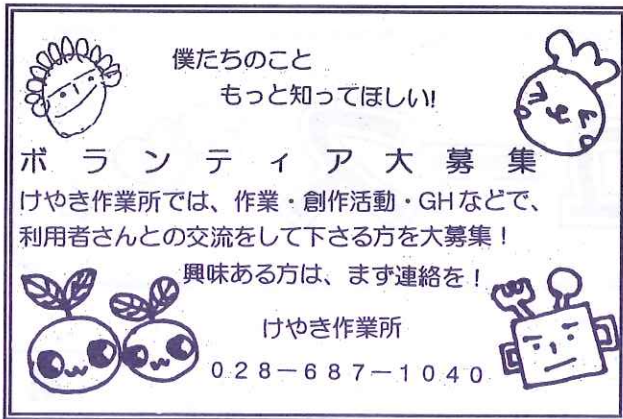 僕たちのこと
もっと知ってほしい!
ボランティア大募集
けやき作業所では、作業・創作活動・GHなどで、
利用者さんとの交流をして下さる方を大募集！
興味ある方は、まず連絡を！
けやき作業所
028－687－1040